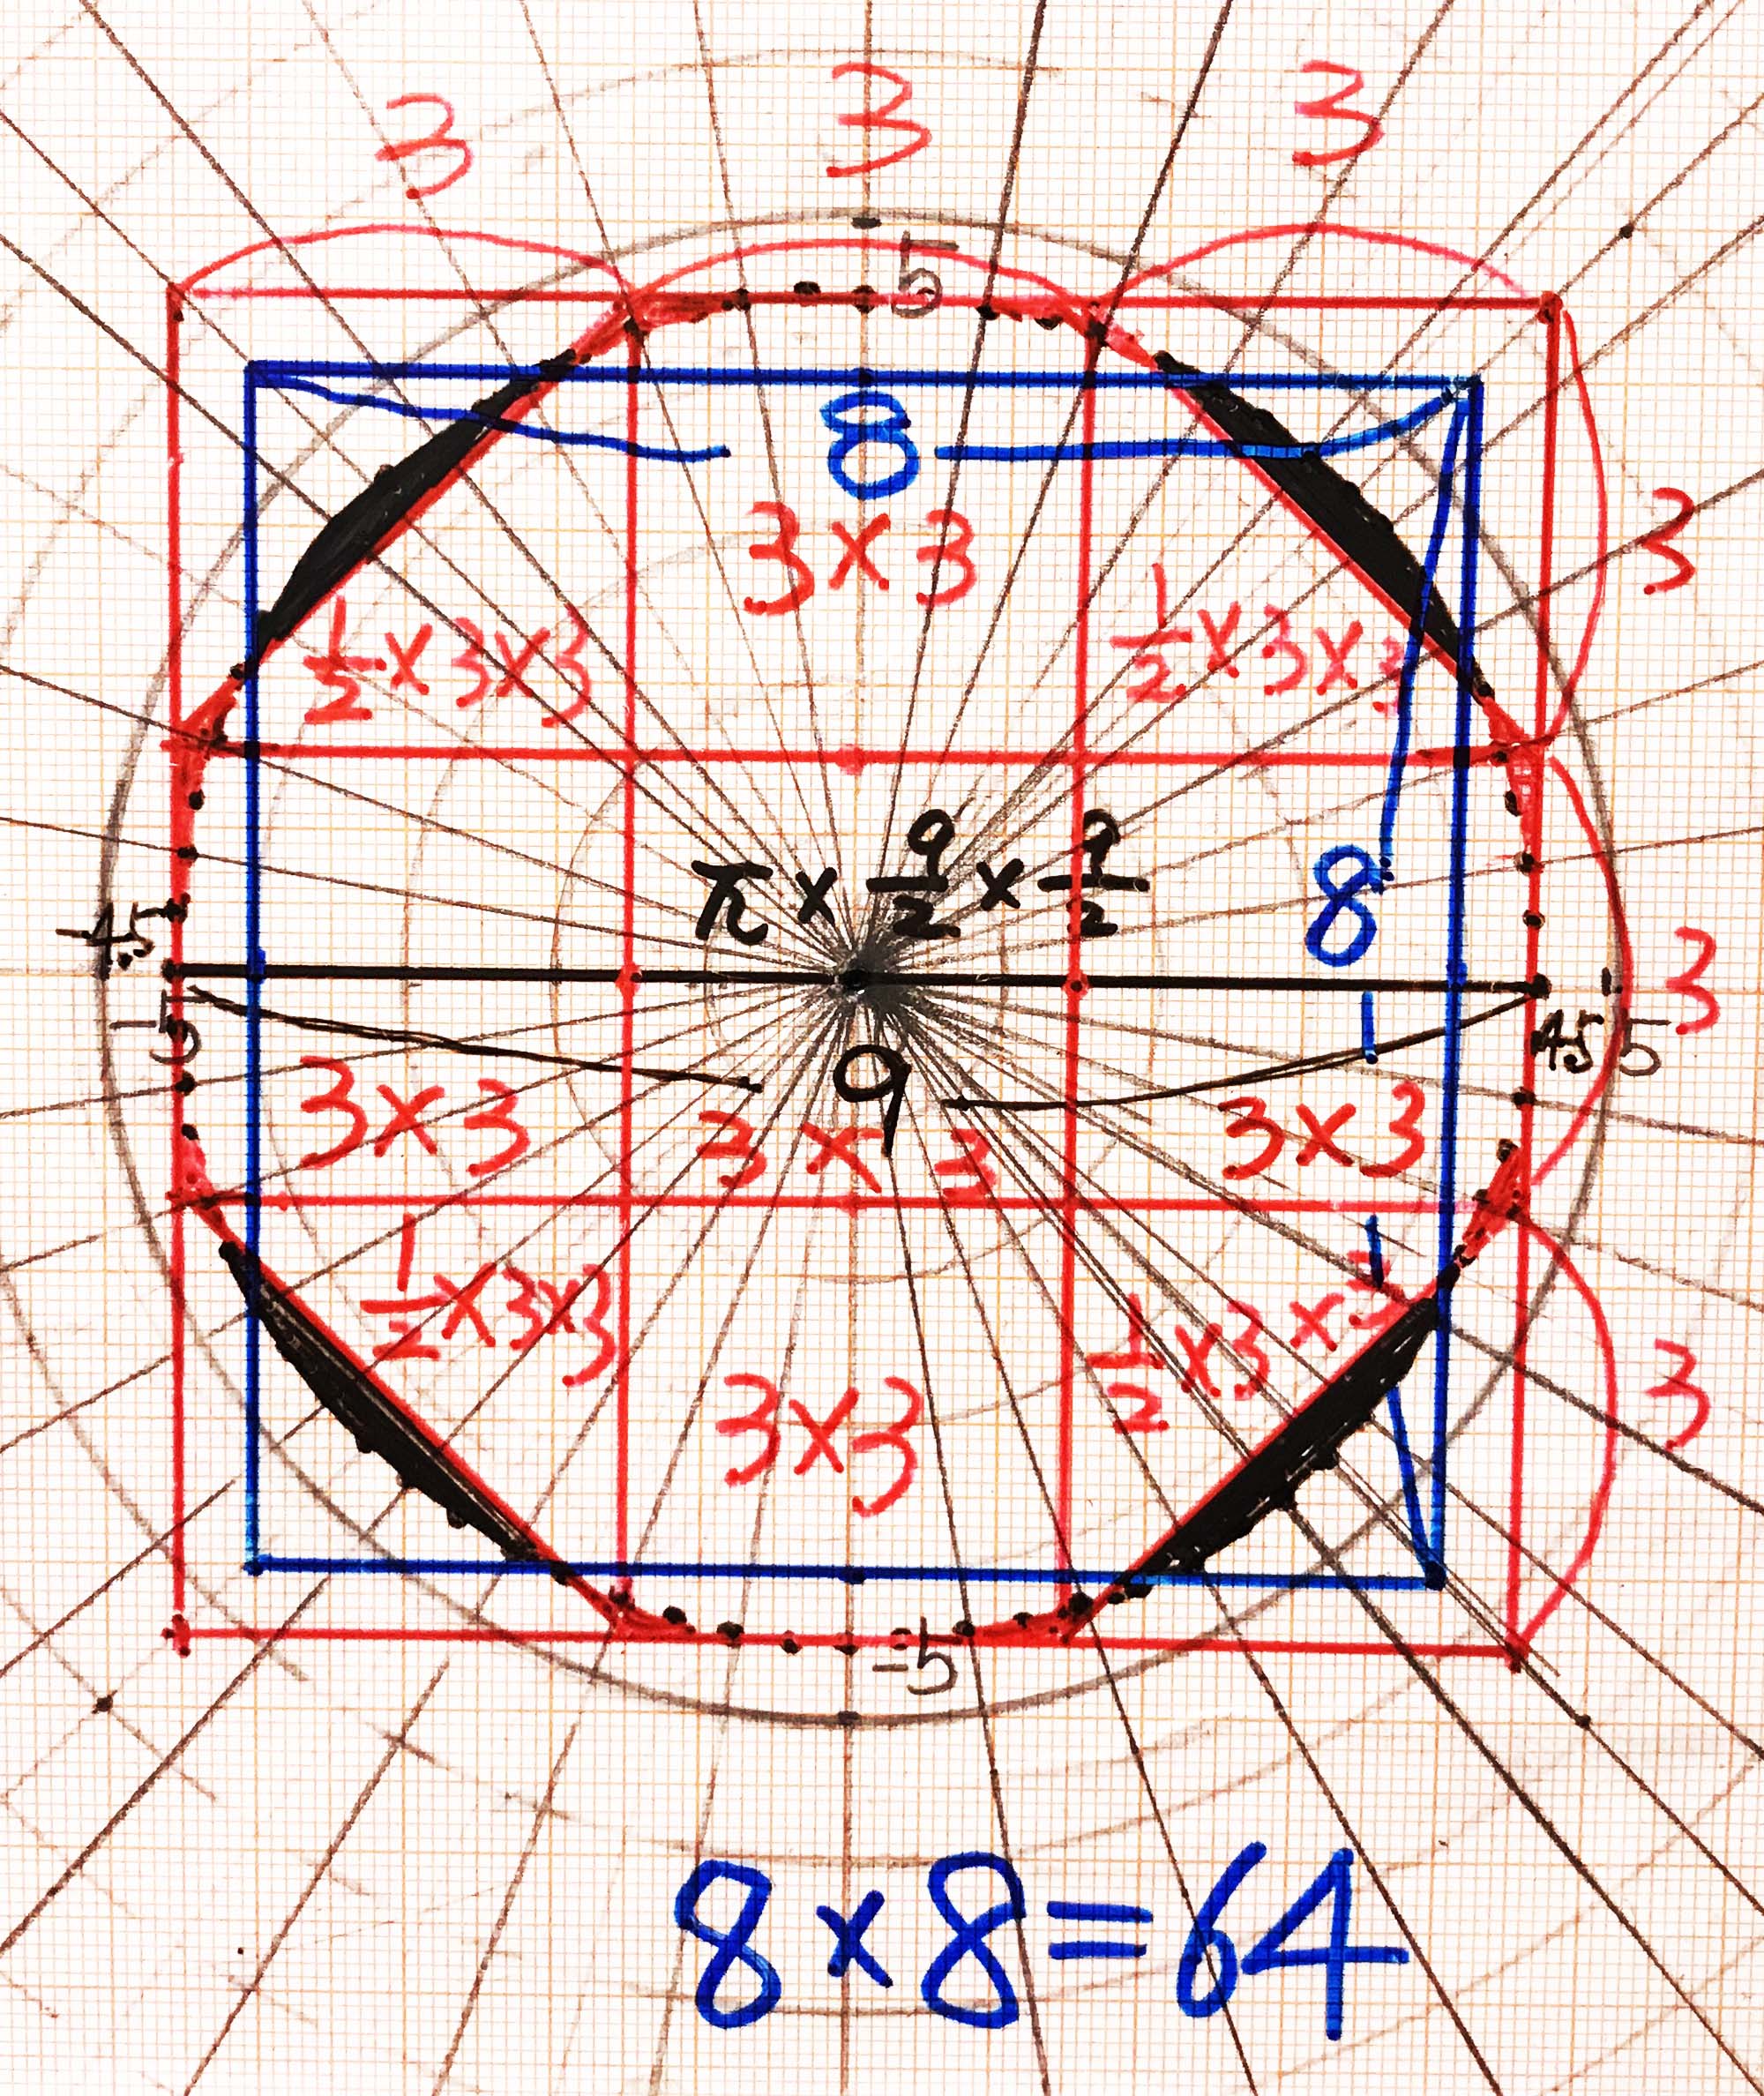 3 3 3
5
8
3×3
3
1/2×3×3 1/2×3×3
π×9/2×9/2
8
-4.5
3
-5 9 4.5 5
3×3 3×3 3×3
1/2×3×3 1/2×3×3
3×3
3
-5
8×8=64